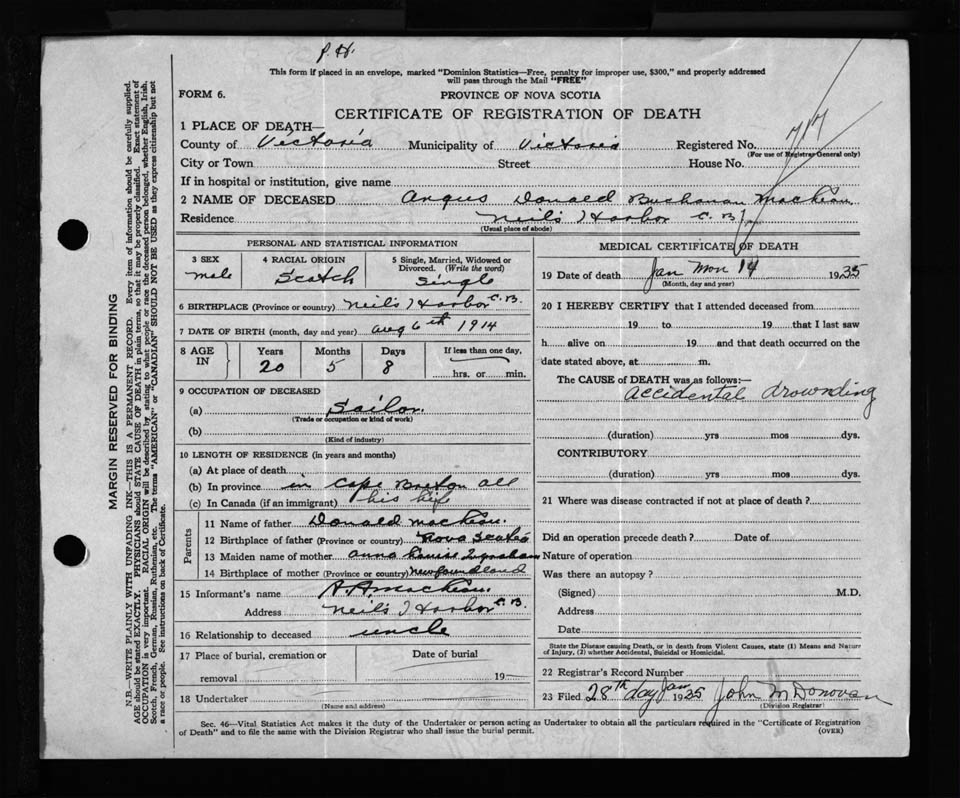 P. H.
This form if placed in an envelope, marked "Dominion Statistics—Free, penalty for improper use, $300," and properly addressed
will pass through the Mail "FREE"
FORM 6.
PROVINCE OF NOVA SCOTIA
CERTIFICATE OF REGISTRATION OF DEATH
1 PLACE OF DEATH—
County of Victoria Municipality of Victoria Registered No.
(For use of Registrar General only)
City or Town Street House No.
If in hospital or institution, give name
2 NAME OF DECEASED Angus Donald Buchanan
Residence Neil's Harbor C. B.
(Usual place of abode)
PERSONAL AND STATISTICAL INFORMATION
3 SEX
male
4 RACIAL ORIGIN
Scotch
5 Single, Married, Widowed or
Divorced. (Write the word)
Single
6 BIRTHPLACE (Province or country) Neil's Harbor C.B.
7 DATE OF BIRTH (month, day and year) Aug 6th 1914
8 AGE IN
Years Months Days If less than one day,
20 5 8 hrs. or min.
9 OCCUPATION OF DECEASED
(a) Sailor.
(Trade or occupation or kind of work)
(b)
(Kind of industry)
10 LENGTH OF RESIDENCE (in years and months)
(a) At place of death
(b) In province in Cape Breton all
(c) In Canada (if an immigrant) his life
Parents
11 Name of father Donald
12 Birthplace of father (Province or country) Nova Scotia
13 Maiden name of mother Anna Louise
14 Birthplace of mother (Province or country) Newfoundland
15 Informant's name
Address Neil's Harbor C.B.
16 Relationship to deceased uncle
17 Place of burial, cremation or Date of burial
removal 19
18 Undertaker
(Name and address)
MEDICAL CERTIFICATE OF DEATH
19 Date of death Jan Mon 14 1935
(Month, day and year)
20 I HEREBY CERTIFY that I attended deceased from
19 to 19 that I last saw
h alive on 19 and that death occurred on the
date stated above, at m.
The CAUSE of DEATH was as follows:—
accidental drownding
(duration) yrs mos dys.
CONTRIBUTORY
(duration) yrs mos dys.
21 Where was disease contracted if not at place of death?
Did an operation precede death? Date of
Nature of operation
Was there an autopsy?
(Signed) M.D.
Address
Date
State the Disease causing Death, or in death from Violent Causes, state (1) Means and Nature
of Injury, (2) whether Accidental, Suicidal or Homicidal.
22 Registrar's Record Number
23 Filed 28th day Jan 1935 John McDonovan
(Division Registrar)
Sec. 46—Vital Statistics Act makes it the duty of the Undertaker or person acting as Undertaker to obtain all the particulars required in the "Certificate of Registration
of Death" and to file the same with the Division Registrar who shall issue the burial permit.
(OVER)
MARGIN RESERVED FOR BINDING
N.B.—WRITE PLAINLY WITH UNFADING INK—THIS IS A PERMANENT RECORD. Every item of information should be carefully supplied.
AGE should be stated EXACTLY. PHYSICIANS should STATE CAUSE OF DEATH in plain terms, so that it may be properly classified. Exact statement of
OCCUPATION is very important. RACIAL ORIGIN will be described by stating to what people or race the deceased person belonged, whether English, Irish,
Scotch, French, German, Russian, Ruthenian, etc. The terms "AMERICAN" or "CANADIAN" SHOULD NOT BE USED as they express citizenship but not
a race or people. See instructions on back of Certificate.